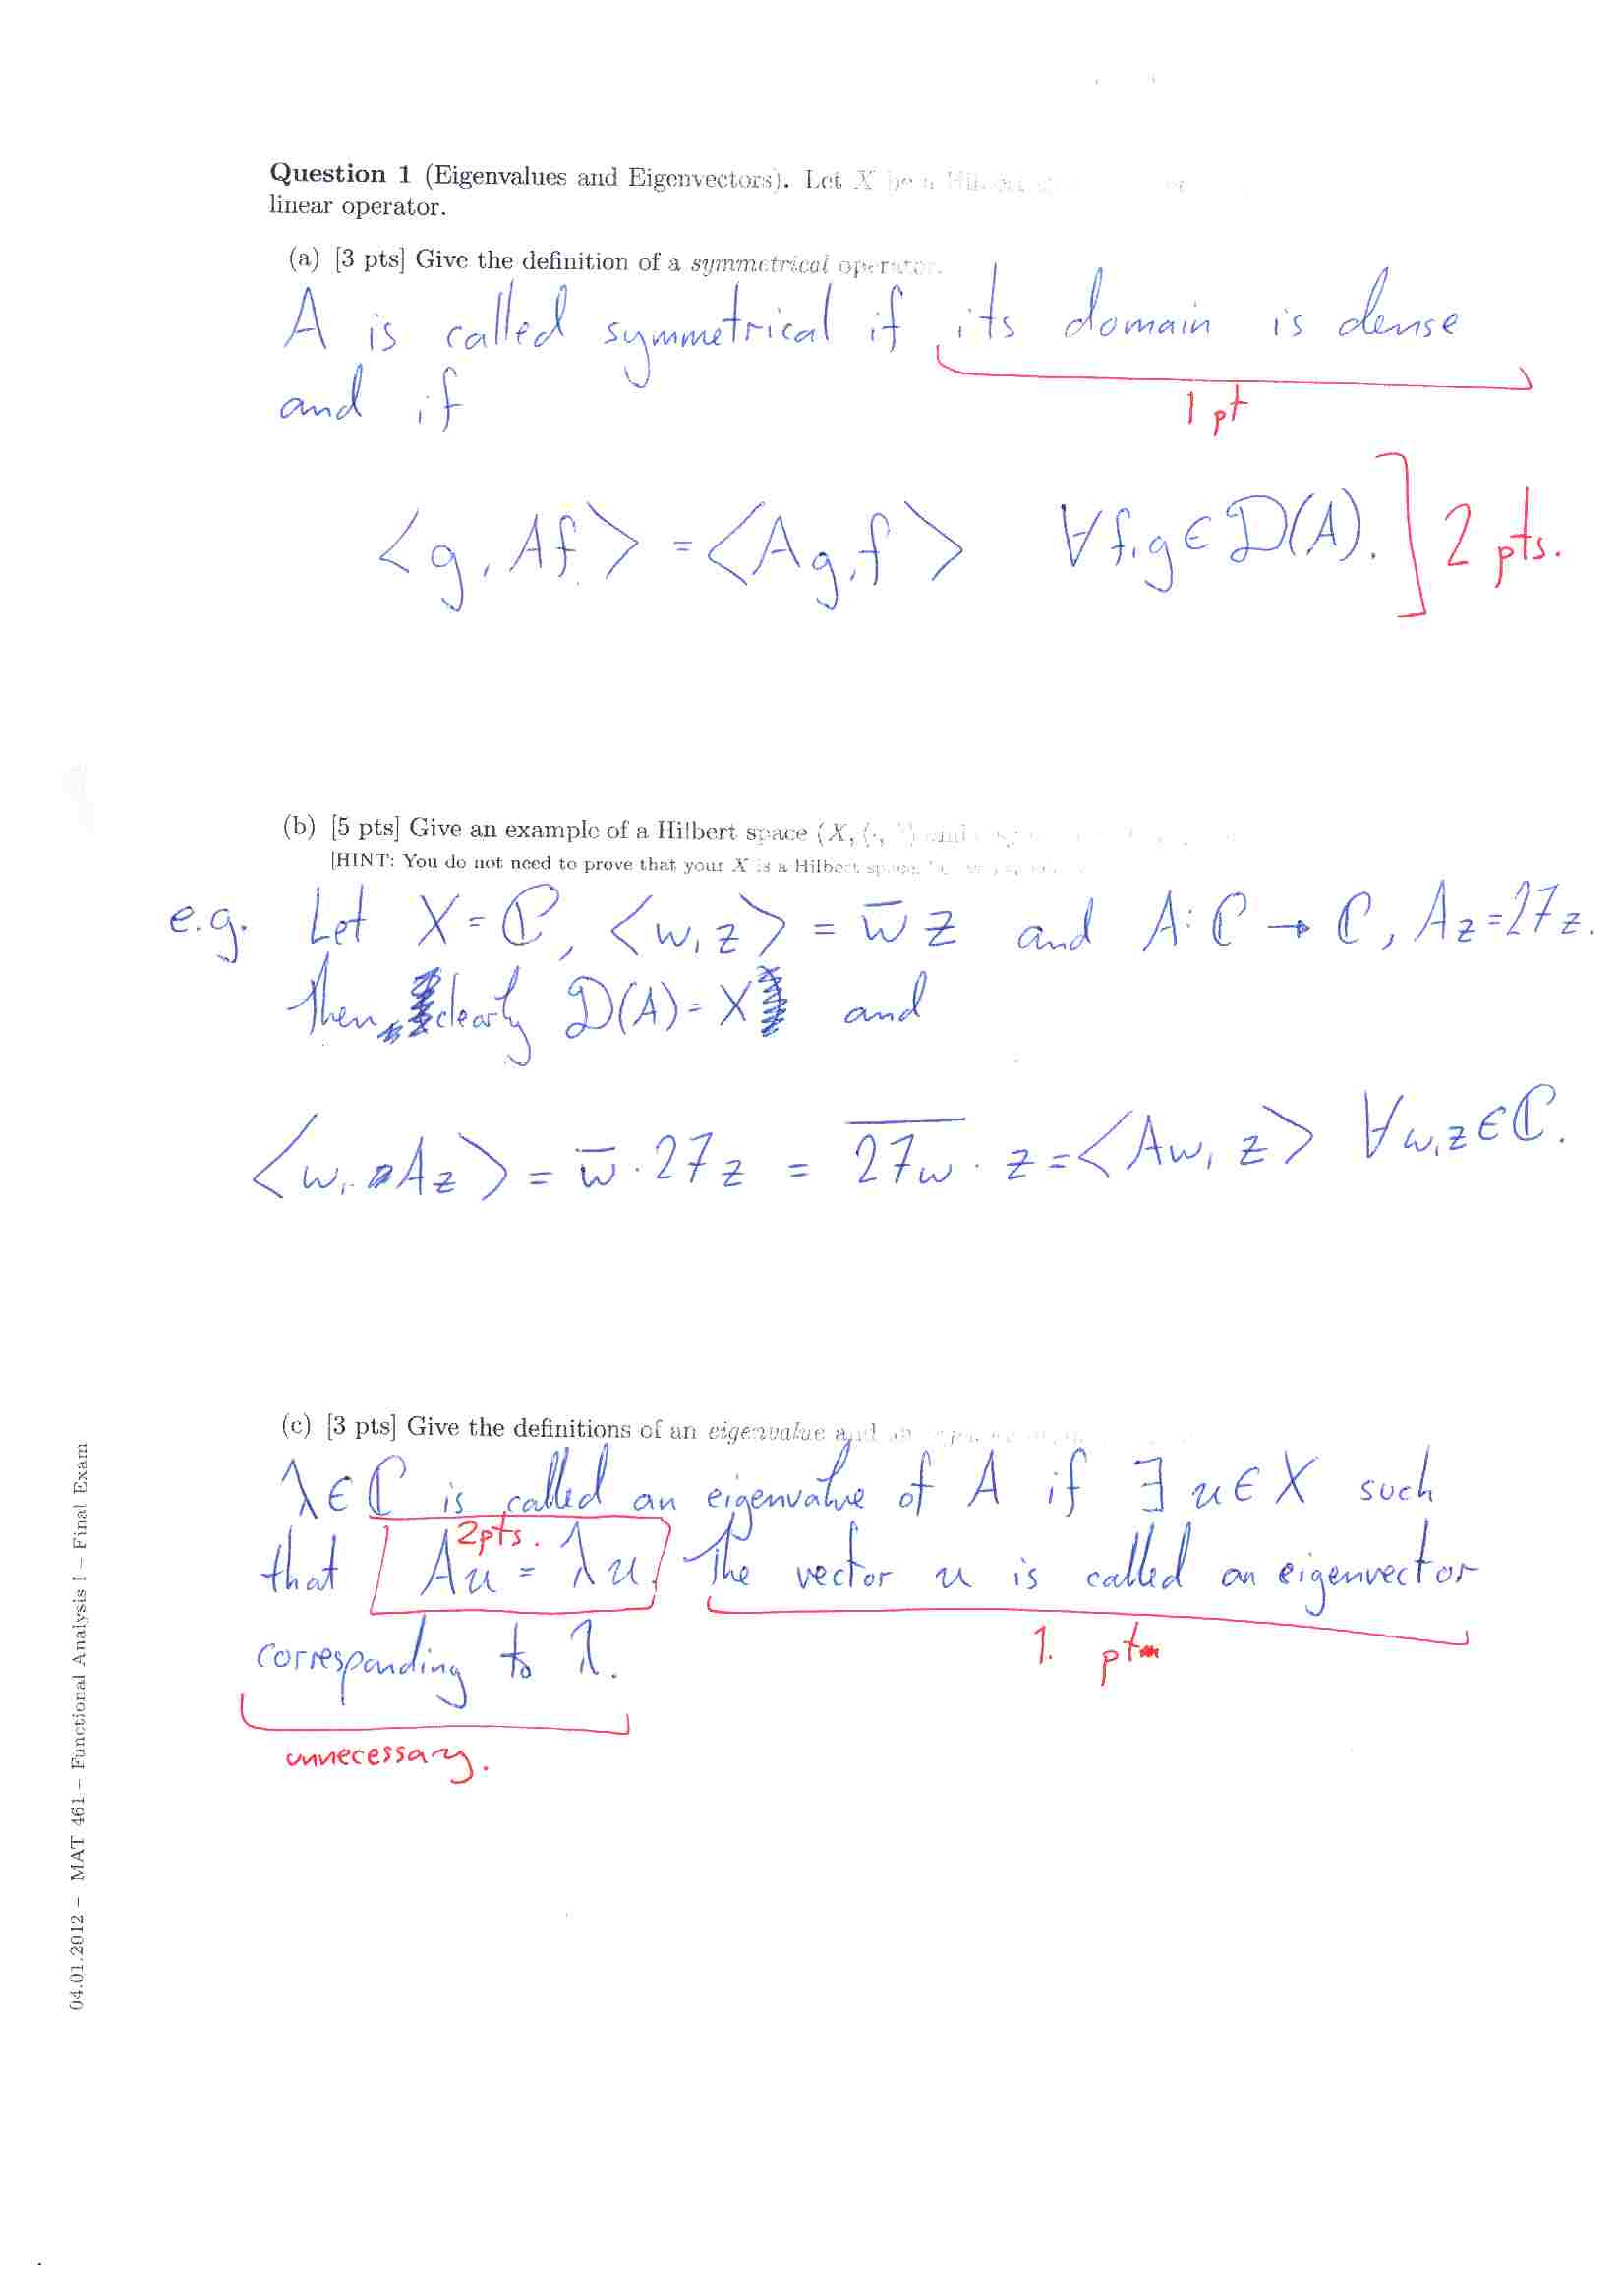 Question 1 (Eigenvalues and Eigenvectors). Let X be a Hilbert
linear operator.
(a) [3 pts] Give the definition of a symmetrical operator.
A is called symmetrical if its domain is dense
and if
1 pt
<g, Af> = <Ag, f> ∀ f, g ∈ D(A). ] 2 pts.
(b) [5 pts] Give an example of a Hilbert space (X, ⟨·, ·⟩) and
[HINT: You do not need to prove that your X is a Hilbert space,
e.g. Let X = ℂ, <w, z> = w̅ z and A: ℂ → ℂ, Az = 27z.
Then clearly D(A) = X and
<w, Az> = w̅ · 27z = \overline{27w} · z = <Aw, z> ∀ w, z ∈ ℂ.
(c) [3 pts] Give the definitions of an eigenvalue and an
λ ∈ ℂ is called an eigenvalue of A if ∃ u ∈ X such
2pts.
that Au = λu. The vector u is called an eigenvector
corresponding to λ.
1. pt
unnecessary.
04.01.2012 – MAT 461 – Functional Analysis I – Final Exam